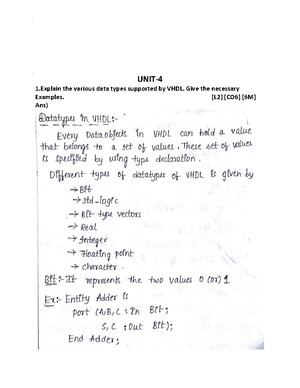 UNIT-4
1.Explain the various data types supported by VHDL. Give the necessary
Examples. [L2] [CO6] [6M]
Ans)
Datatypes in VHDL:-
Every Dataobjects in VHDL can hold a value
that belongs to a set of values. These set of values
is specified by using type declaration.
Different types of datatypes of VHDL is given by
→ Bit
→ Std-logic
→ Bit type vectors
→ Real
→ Integer
→ Floating point
→ Character.
Bit:- It represents the two values 0 (or) 1
Ex:- Entity Adder is
Port (A,B,C : In Bit;
S, C : Out Bit);
End Adder;